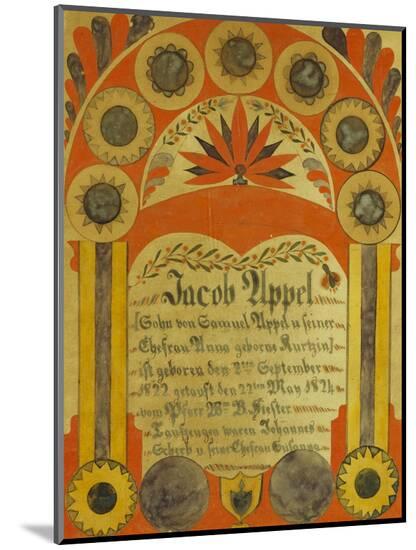 Jacob Appel
[Sohn von Samuel Appel u seiner
Ehefrau Anna geborne Kurtzin]
ist geboren den 2ten September
1822 getauft den 22ten May 1824
vom Pfarr Wm B. Hiester
Taufzeugen waren Johannes
Scherb u seine Ehefrau Susanna